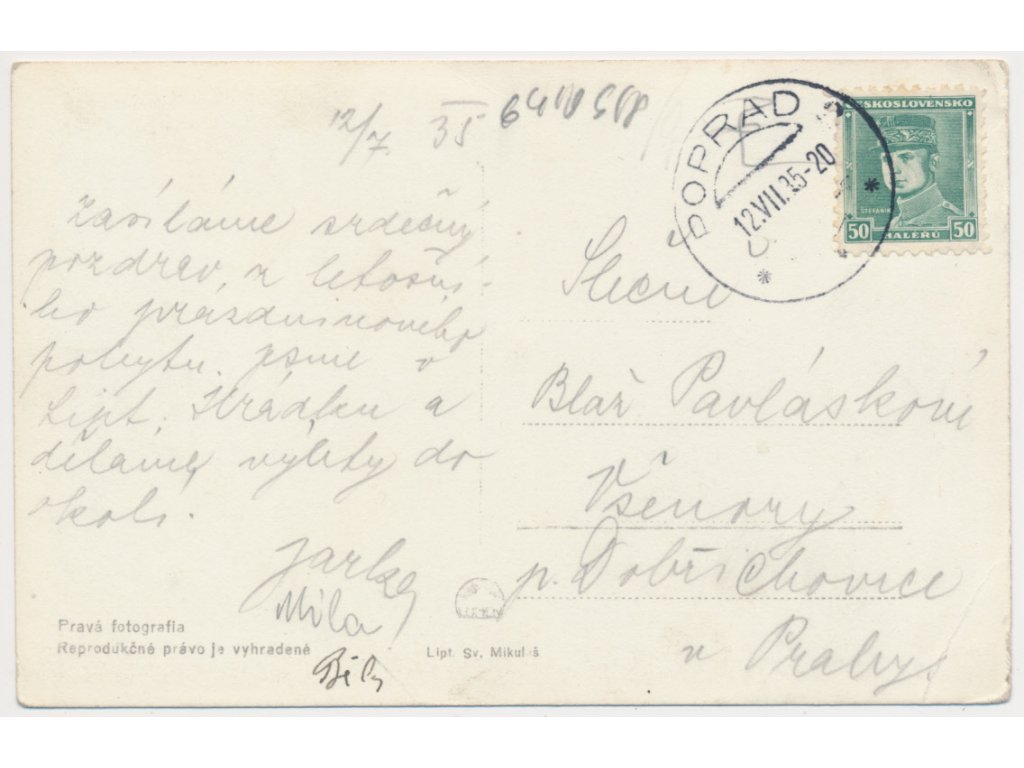 12/7. 35
Zasíláme srdečný
pozdrav z letošní-
ho prázdninového
pobytu. Jsme v
Lipt. Hrádku a
děláme výlety do
okolí.
Jarka
Mila
Pravá fotografia
Reprodukčné právo je vyhradené
Lipt. Sv. Mikuláš
POPRAD 2
12.VII.35-20
ČESKOSLOVENSKO
ŠTEFÁNIK
50 HALÉŘŮ 50
Slečně
Blaž Pavláskové
Všenory
p. Dobřichovice
u Prahy